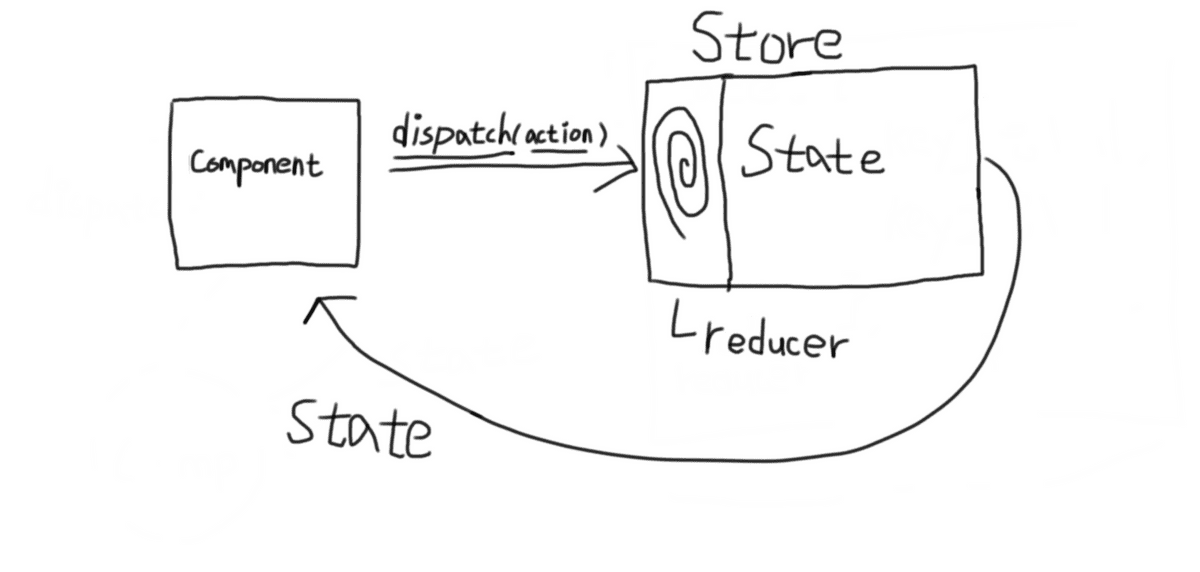 Store
Component
dispatch(action)
State
reducer
State